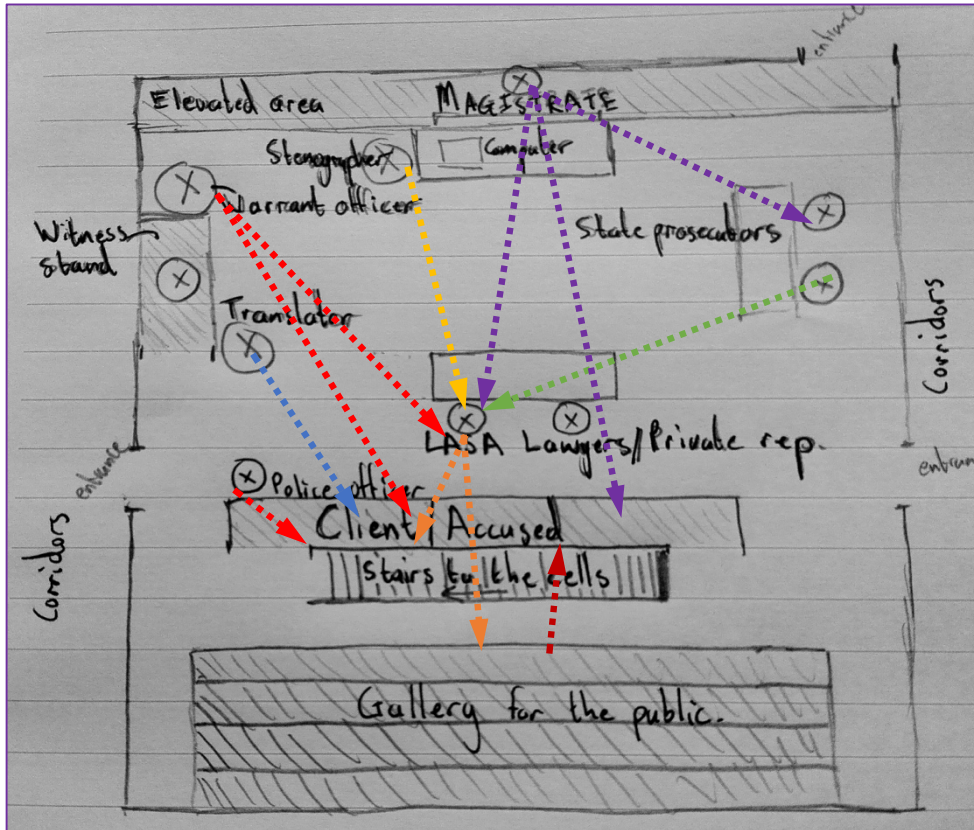 entrance
Elevated area
MAGISTRATE
Stenographer
Computer
Warrant officer
Witness
stand
State prosecutors
Translator
Corridors
LASA Lawyers//Private rep.
entrance
entran
Police officer
Client Accused
Stairs to the cells
Corridors
Gallery for the public.